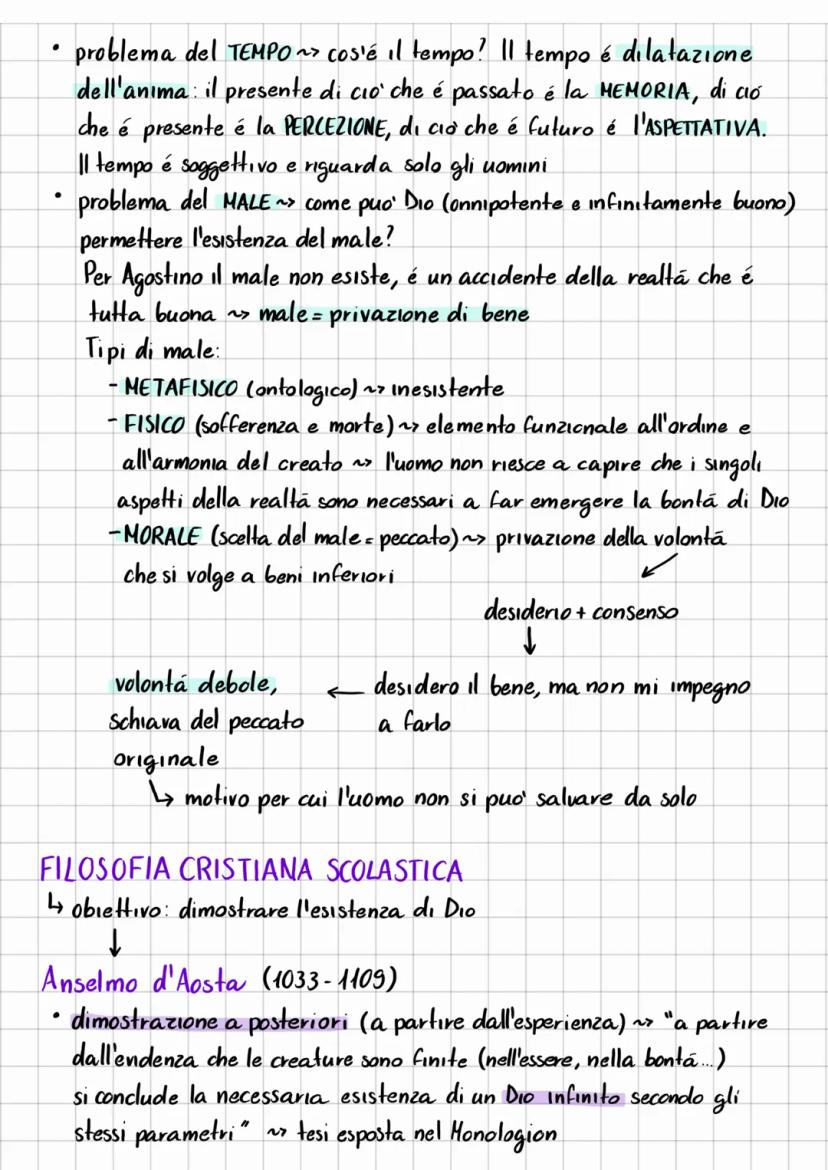 • problema del TEMPO ~> cos'é il tempo? Il tempo é dilatazione
dell'anima: il presente di ció che é passato é la MEMORIA, di ció
che é presente é la PERCEZIONE, di ció che é futuro é l'ASPETTATIVA.
Il tempo é soggettivo e riguarda solo gli uomini
• problema del MALE ~> come puo' Dio (onnipotente e infinitamente buono)
permettere l'esistenza del male?
Per Agostino il male non esiste, é un accidente della realtá che é
tutta buona ~> male = privazione di bene
Tipi di male:
- METAFISICO (ontologico) ~> inesistente
- FISICO (sofferenza e morte) ~> elemento funzionale all'ordine e
all'armonia del creato ~> l'uomo non riesce a capire che i singoli
aspetti della realtá sono necessari a far emergere la bontá di Dio
- MORALE (scelta del male = peccato) ~> privazione della volontá
che si volge a beni inferiori
↙
desiderio + consenso
↓
volontá debole, ← desidero il bene, ma non mi impegno
schiava del peccato a farlo
originale
↳ motivo per cui l'uomo non si puo' salvare da solo
FILOSOFIA CRISTIANA SCOLASTICA
↳ obiettivo: dimostrare l'esistenza di Dio
↓
Anselmo d'Aosta (1033-1109)
• dimostrazione a posteriori (a partire dall'esperienza) ~> "a partire
dall'endenza che le creature sono finite (nell'essere, nella bontá...)
si conclude la necessaria esistenza di un Dio infinito secondo gli
stessi parametri" ~> tesi esposta nel Monologion